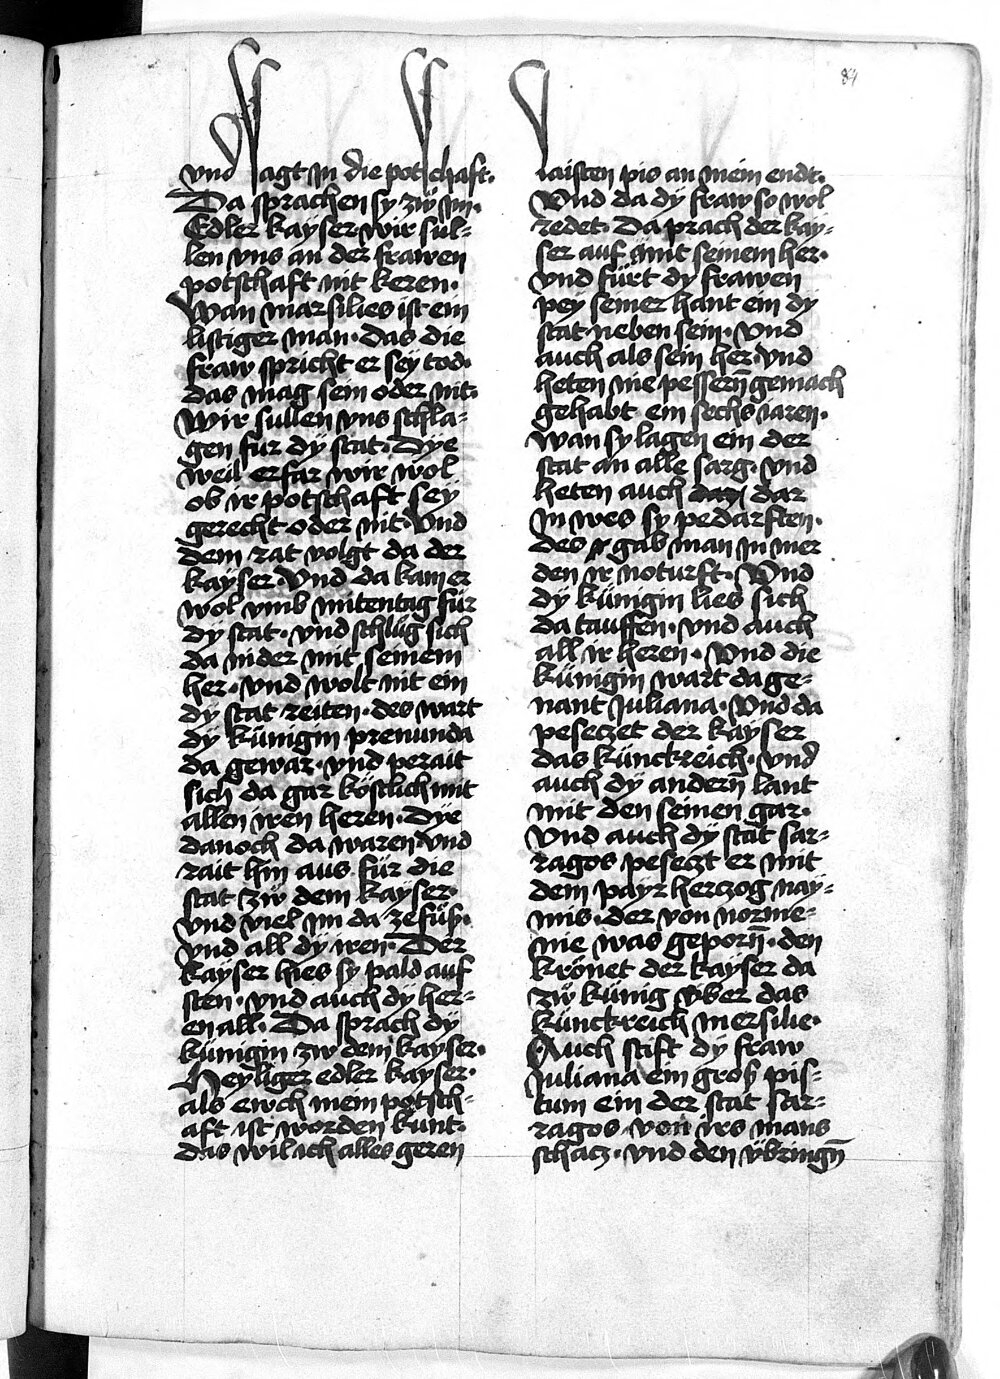 84
vnd sagt jn die potschaft·
Da sprachen sy zw̋ jm·
Edler kayser wir sul⸗
len vns an der frawen
potschaft nit keren·
Wan marsilies ist ein
listiger man· das die
fraw spricht er sey tod·
das mag sein oder nit·
Wir sullen vns schla⸗
gen fur dy stat· Dye
weil erfar wir wol
ob ir potschaft sey
gerecht oder nit· Vnd
dem rat volgt da der
kayser· Vnd da kam er
wol vmb mitentag für
dy stat· vnd schlüg sich
da nider mit seinem
her· vnd wolt nit ein
dy stat reiten· des wart
dy künigin premunda
da gewar· vnd perait
sich da gar köstlich mit
allen iren heren· Dye
danoch da waren vnd
rait hin aus für die
stat zw̋ dem kayser·
vnd viel jm da ze füß·
vnd all dy iren· Der
kayser hies sy pald auf
sten· vnd auch dy her⸗
en all· Da sprach dy
künigin zw dem kayser·
Heyliger edler kayser·
als ewch mein potsch⸗
aft ist worden kunt·
das wil ich alles geren
laisten pis an mein endt·
Vnd da dy fraw so wol
redet· Da prach der kay⸗
ser auf mit seinem her·
vnd fürt dy frawen
pey seiner hant ein dy
stat neben sein· Vnd
auch als sein her vnd
heten nie pessern̄ gemach
gehabt ein sechs jaren·
Wan sy lagen ein der
stat an alle sarg· Vnd
heten auch dar
jn wes sy pedarften·
des gab man jn mer
den ir noturft· Vnd
dy künigin lies sich
da tauffen· vnd auch
all ir heren· Vnd die
künigin wart da ge⸗
nant Juliana· Vnd da
peseczet der kayser
das künckreich· vnd
auch dy andern̄ lant
mit den seinen gar·
Vnd auch dy stat sar⸗
ragos peseczt er mit
dem payr herczog nay⸗
mis· der von norme⸗
nie was geporn̄· den
krönet der kayser da
zw̋ künig vber das
künckreich mersilie·
Auch stift dy fraw
Juliana ein groß pis⸗
tum ein der stat sar⸗
ragos von irs mans
schacz· vnd den übringn̄